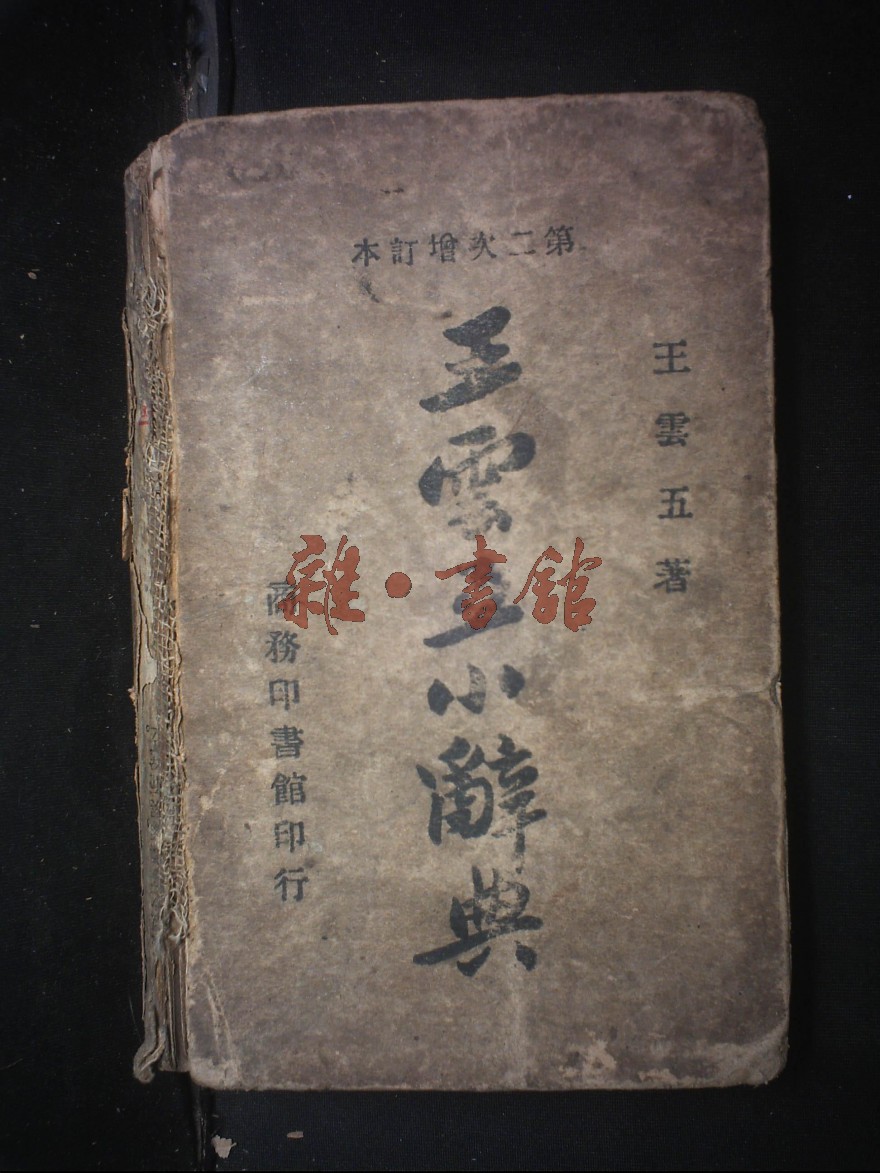 第二次增訂本
王雲五著
王雲五小辭典
商務印書館印行
雜·書館